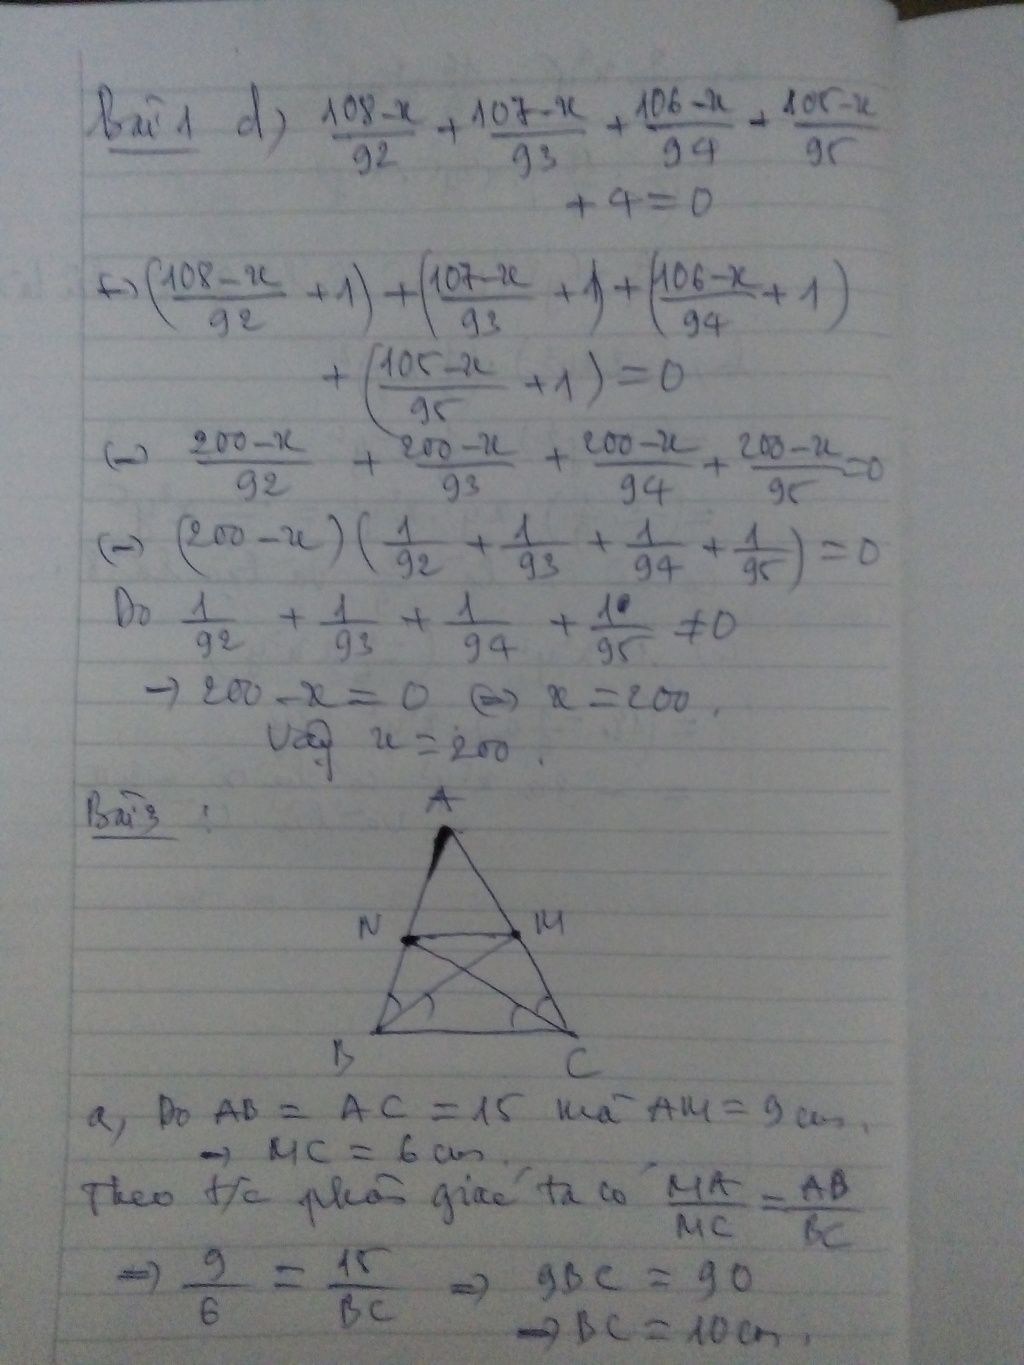 Bài 1 d) (108-x)/92 + (107-x)/93 + (106-x)/94 + (105-x)/95
+ 4 = 0
↔ ((108-x)/92 + 1) + ((107-x)/93 + 1) + ((106-x)/94 + 1)
+ ((105-x)/95 + 1) = 0
↔ (200-x)/92 + (200-x)/93 + (200-x)/94 + (200-x)/95 = 0
↔ (200-x)(1/92 + 1/93 + 1/94 + 1/95) = 0
Do 1/92 + 1/93 + 1/94 + 1/95 ≠ 0
→ 200-x = 0 ⇔ x = 200.
Vậy x = 200.
Bài 3 :
A
N M
B C
a, Do AB = AC = 15 mà AM = 9 cm.
→ MC = 6 cm.
Theo t/c phân giác ta có MA/MC = AB/BC
⇒ 9/6 = 15/BC ⇒ 9BC = 90
⇒ BC = 10 cm.